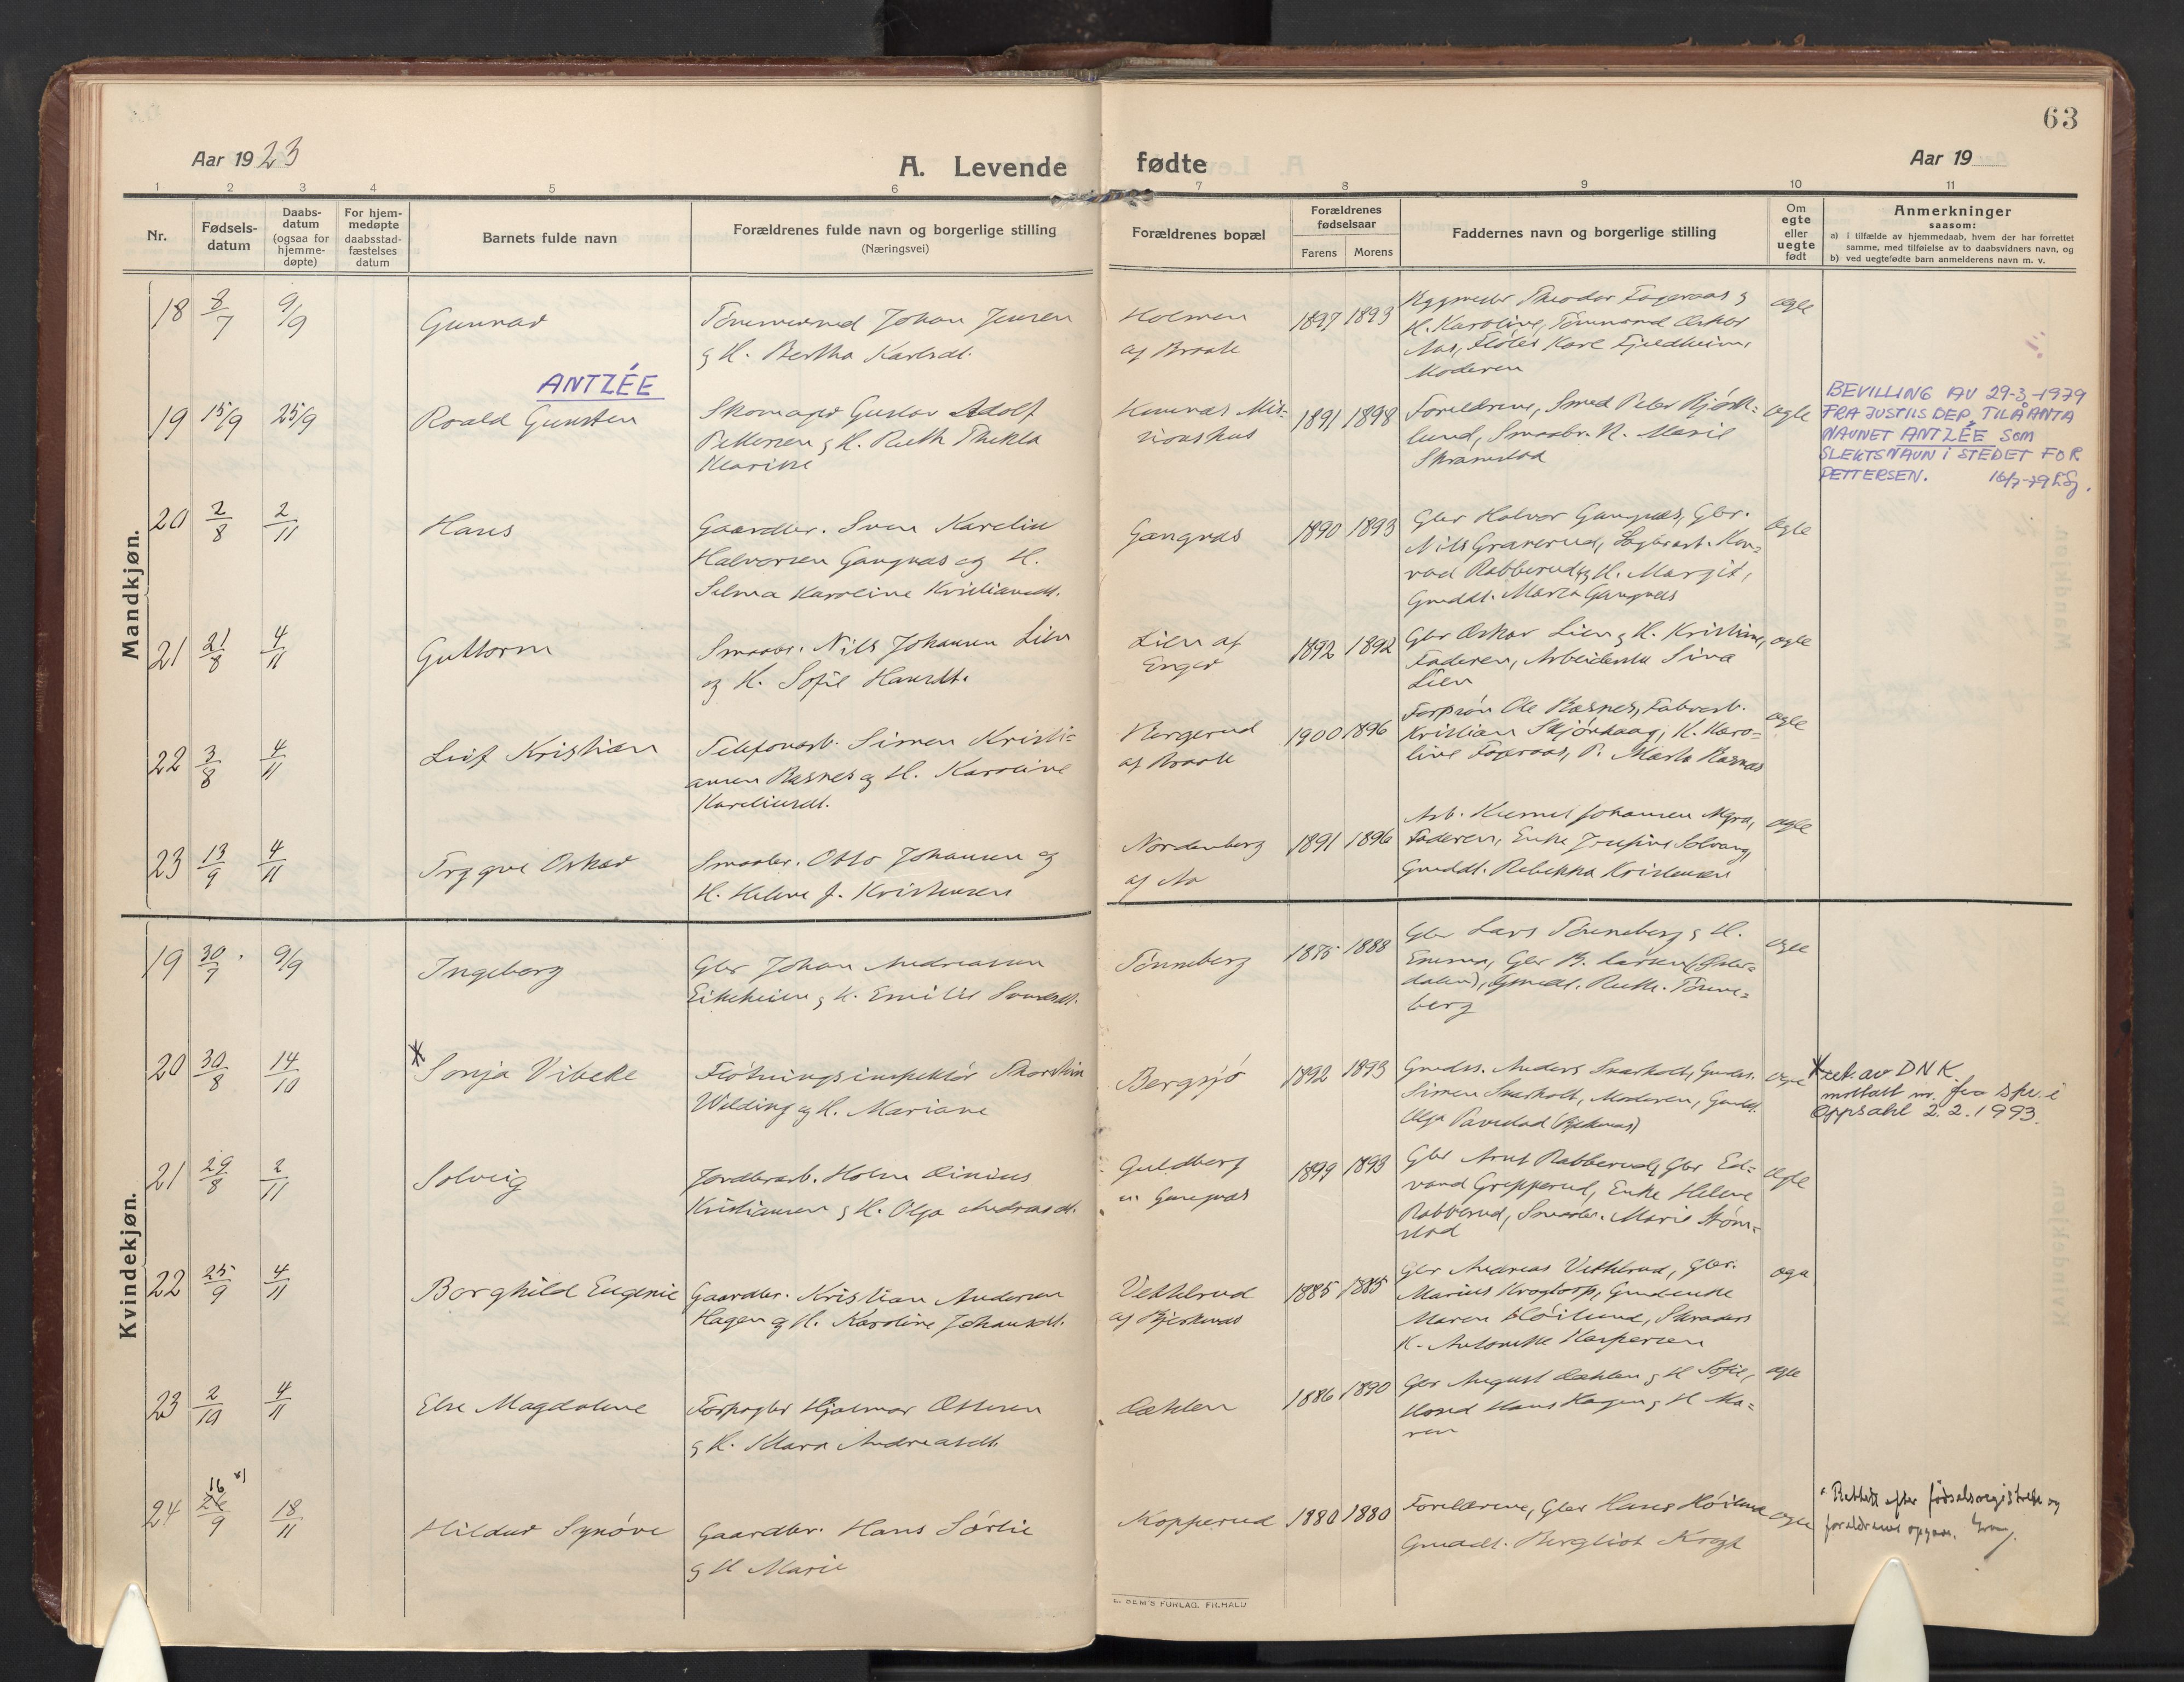 63
Aar 1923
A. Levende fødte
Aar 19
1 2 3 4 5 6 7 8 9 10 11
Nr.
Fødsels-
datum
Daabs-
datum
(ogsaa for
hjemme-
døpte)
For hjem-
medøpte
daabsstad-
fæstelses
datum
Barnets fulde navn
Forældrenes fulde navn og borgerlige stilling
(Næringsvei)
Forældrenes bopæl
Forældrenes
fødselsaar
Farens Morens
Faddernes navn og borgerlige stilling
Om
egte
eller
uegte
født
Anmerkninger
saasom:
a) i tilfælde av hjemmedaab, hvem der har forrettet
samme, med tilføielse av to daabsvidners navn, og
b) ved uegtefødte barn anmelderens navn m. v.
Mandkjøn.
18 8/7 9/9 Gunnar
Tømmermand Johan Jensen
og H. Bertha Karlsdt.
Holmen
af Braate
1897 1893
H. Karoline, Tømmermand Oskar
Aas, Fløter Karl Fjeldheim,
Moderen
egte
ANTZÉE
19 15/9 25/9 Roald Gunsten
Skomager Gustav Adolf
Pettersen og H. Ruth Thekla
Kemnæs Mis-
sionshus
1891 1898
Forældrene, Smed Peter Bjørk-
lund, Smaabr. K. Marie
egte
BEVILLING AV 29-3-1979
FRA JUSTIS DEP. TIL Å ANTA
NAVNET ANTZÉE SOM
SLEKTSNAVN I STEDET FOR
PETTERSEN. 16/7-79
20 2/8 2/11 Hans
Gaardbr. Sven Karelius
Halvorsen Gangnæs og H.
Selma Karoline Kristiansdt.
Gangnæs
1890 1893
Gbr Halvor Gangnæs, Gbr.
Nils Graverud, Kon-
rad Rabberud og H. Margit,
Gmddt. Marta Gangnæs
egte
21 21/8 4/11 Guttorm
Smaabr. Nils Johansen Lien
og H. Sofie Hansdt.
Lien af
Enger
1892 1892
Gbr Oskar Lien og H. Kristine,
Faderen, Arbeiderske Sina
Lien
egte
22 3/8 4/11 Leif Kristian
Telefonarb. Simen Kristi-
ansen Basnes og H. Karoline
Kareliusdt.
Bergerud
af Braate
1900 1896
Ole Basnes, Fabrarb.
Kristian Skjønhaug, K. Karo-
line Fageraas, P. Marta Basnæs
egte
23 13/9 4/11 Trygve Oskar
Smaabr. Otto Johansen og
H. Helene J. Kristensen
Nordenberg
af Aa
1891 1896
Arb. Johansen Myra,
Faderen, Enke Josefine Solvang,
Gmddt. Rebekka Kristensen
egte
Kvindekjøn.
19 30/7 9/9 Ingeborg
Gbr Johan Andreassen
Eikeheien og H. Emilie Svendsdt.
Tønneberg
1875 1888
Gbr Lars Tønneberg og H.
Emma, Gbr B. Larsen (Øster-
dalen), Gmddt. Ruth Tønne-
berg
egte
20 30/8 14/10 * Sonja Vibeke
Fløtningsinspektør Thorstein
Wilding og H. Mariane
Bergsjø
1892 1893
Gmdss. Anders Snarholt, Gmdss.
Simen Snarholt, Moderen, Gmddt.
egte
* av DNK
mottatt fra i
Oppsahl 2.2.1993.
21 29/8 2/11 Solveig
Jordbrarb. Holm Dinius
Kristiansen og H. Olga Andreasdt.
Guldberg
u. Gangnæs
1899 1893
Gbr Arnt Rabberud, Gbr Ed-
vard Grepperud, Enke Helene
Rabberud, Smaabr. Marie Strøm-
stad
egte
22 25/9 4/11 Borghild Eugenie
Gaardbr. Kristian Andersen
Hagen og H. Karoline Johansdt.
Vekkerud
af Bjerknæs
1885 1885
Gbr Andreas Vekkerud, Gbr.
Marius Krogtorp, Gmdenke
Maren Høilund, Skradders
K. Antonette Kaspersen
egte
23 2/10 4/11 Else Magdalene
Forpagter Hjalmar Ottesen
og H. Klara Andreasdt.
Dahlen
1886 1890
Gbr August Dahlen og H Sofie,
Hans Hagen og H Ma-
ren
egte
24 16 *) 26/9 18/11 Hildur Synøve
Gaardbr. Hans Sørlie
og H Marie
Kopperud
1880 1880
Forældrene, Gbr Hans Høilund
Gmddt. Bergliot Krogh
egte
* Rettet efter fødselsregistret og
forældrenes opgave.
E. SEM'S FORLAG. FR.HALD